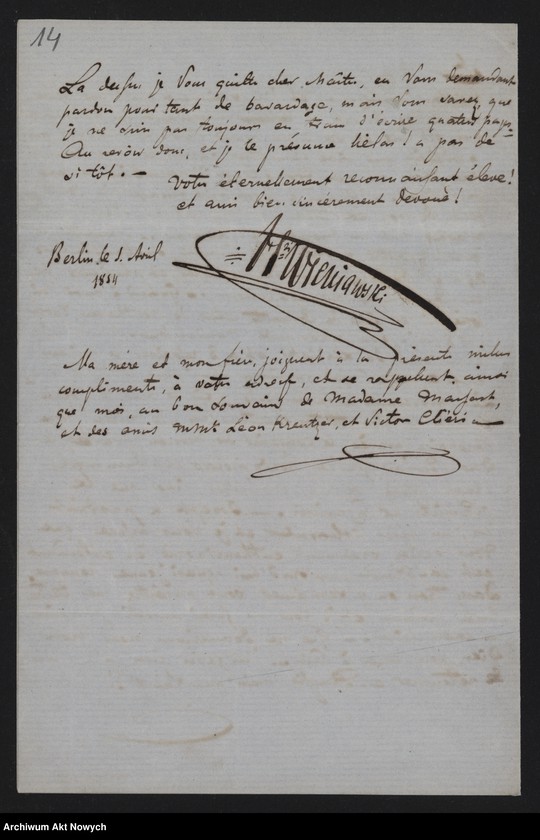 14
La dessu je Vous quitte cher Maître, en Vous demandant
pardon pour tant de bavardage, mais Vous savez, que
je ne suis pas toujours en train d'écrire quatre pages
Au revoir donc, et je le présume hélas! a pas de
si tôt. —
Votre éternellement reconnaissant élève!
et ami bien sincèrement devoué!
Berlin, le 5. Avril
1854
Wieniawski
Ma mère et mon frère, joignent à la présente milles
compliments, à votre adresse, et se rappellent, ainsi
que moi, au bon Souvenir de Madame Massart,
et des amis Léon Kreutzer, et Victor
Archiwum Akt Nowych